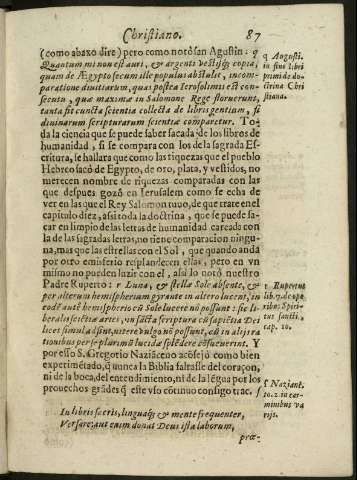 Christiano. 87
(como abaxo dire) pero como notò san Agustin: q
Quantum mi non est auri, & argenti vestiũq; copia,
quam de Ægypto secum ille populus abstulit, in com-
paratione diuitiarum, quas postea Ierosolimis est con-
secutu, quæ maxime in Salomone Rege floruerunt,
tanta fit cuncta scientia collecta de libris gentium, si
diuinarum scripturarum scientiæ comparetur. To-
da la ciencia que se puede saber sacada de los libros de
humanidad, si se compara con los de la sagrada Es-
critura, se hallara que como las riquezas que el pueblo
Hebreo sacó de Egypto, de oro, plata, y vestidos, no
merecen nombre de riquezas comparadas con las
que despues gozó en Ierusalem como se echa de
ver en las que el Rey Salomon tuuo, de que trate en el
capitulo diez, assi toda la doctrina, que se puede sa-
car en limpio de las letras de humanidad careada con
la de las sagradas letras, no tiene comparacion ningu-
na, mas que las estrellas con el Sol, que quando anda
por otro emisferio resplandecen ellas, pero en vn
mismo no pueden luzir con el, assi lo notò nuestro
Padre Ruperto: r Luna, & stellæ Sole absente, &
per alterum hemispherium gyrante in altero lucent, in
eodẽ autẽ hemispherio cũ Sole lucere nõ possunt: sic li-
berales scientiæ artes, vn sãcta scriptura cũ sapiẽtia Dei
lices simul adsint, vtere vulgo nõ possunt, cũ in alijs ra
tionibus per se plurimũ lucidæ splẽdere cõsueuerint. Y
por esso S. Gregorio Naziãceno acõsejó como bien
experimẽtado, q̃ nunca la Biblia faltasse del coraçon,
ni de la boca, del entendimiento, ni de la lẽgua por los
prouechos grãdes q̃ este vso cõtinuo consigo trae. s
In libris sacris, linguaq; & mente frequenter,
Versare: aut enim donat Deus ista laborum,
præ-
q Augusti.
in fine libri
primi de do
ctrina Chri
stiana.
r Rupertus
lib. 7. de ope
ribus Spiri-
tus sancti,
cap. 10.
s Nazianz.
to. 2. in car-
minibus va
rijs.